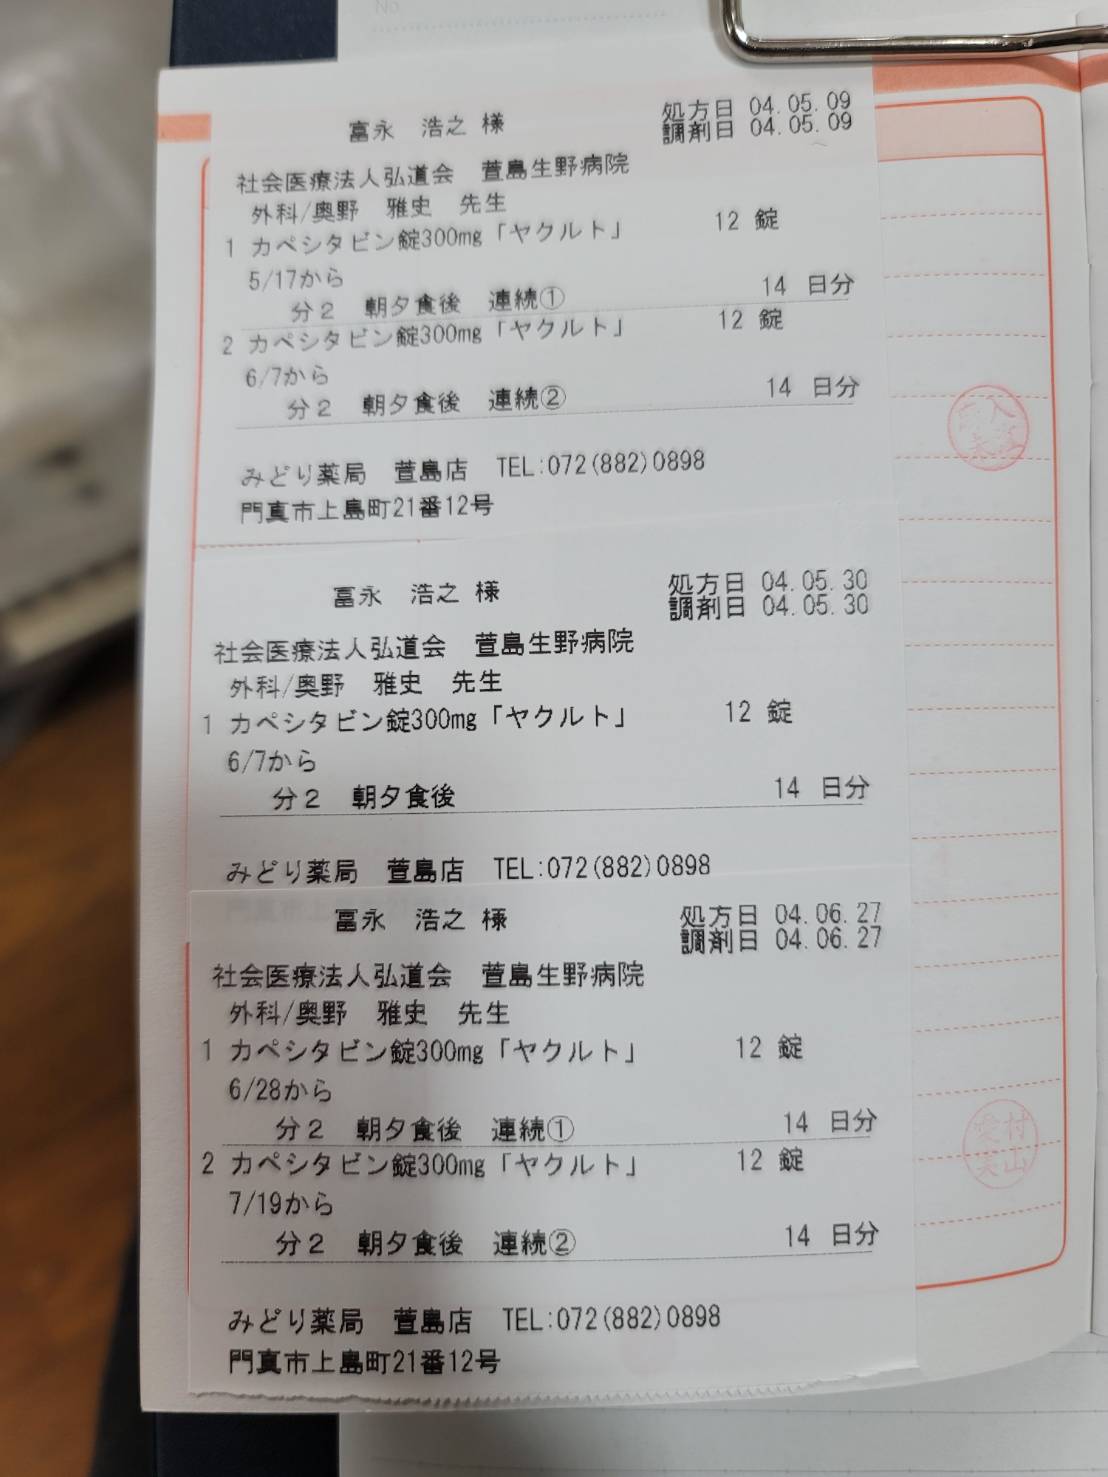 No.
富永 浩之 様
処方日 04.05.09
調剤日 04.05.09
社会医療法人弘道会 萱島生野病院
外科/奥野 雅史 先生
1 カペシタビン錠300mg「ヤクルト」 12 錠
5/17から
分2 朝夕食後 連続① 14 日分
2 カペシタビン錠300mg「ヤクルト」 12 錠
6/7から
分2 朝夕食後 連続② 14 日分
みどり薬局 萱島店 TEL:072(882)0898
門真市上島町21番12号
冨永 浩之 様
処方日 04.05.30
調剤日 04.05.30
社会医療法人弘道会 萱島生野病院
外科/奥野 雅史 先生
1 カペシタビン錠300mg「ヤクルト」 12 錠
6/7から
分2 朝夕食後 14 日分
みどり薬局 萱島店 TEL:072(882)0898
冨永 浩之 様
処方日 04.06.27
調剤日 04.06.27
社会医療法人弘道会 萱島生野病院
外科/奥野 雅史 先生
1 カペシタビン錠300mg「ヤクルト」 12 錠
6/28から
分2 朝夕食後 連続① 14 日分
2 カペシタビン錠300mg「ヤクルト」 12 錠
7/19から
分2 朝夕食後 連続② 14 日分
みどり薬局 萱島店 TEL:072(882)0898
門真市上島町21番12号